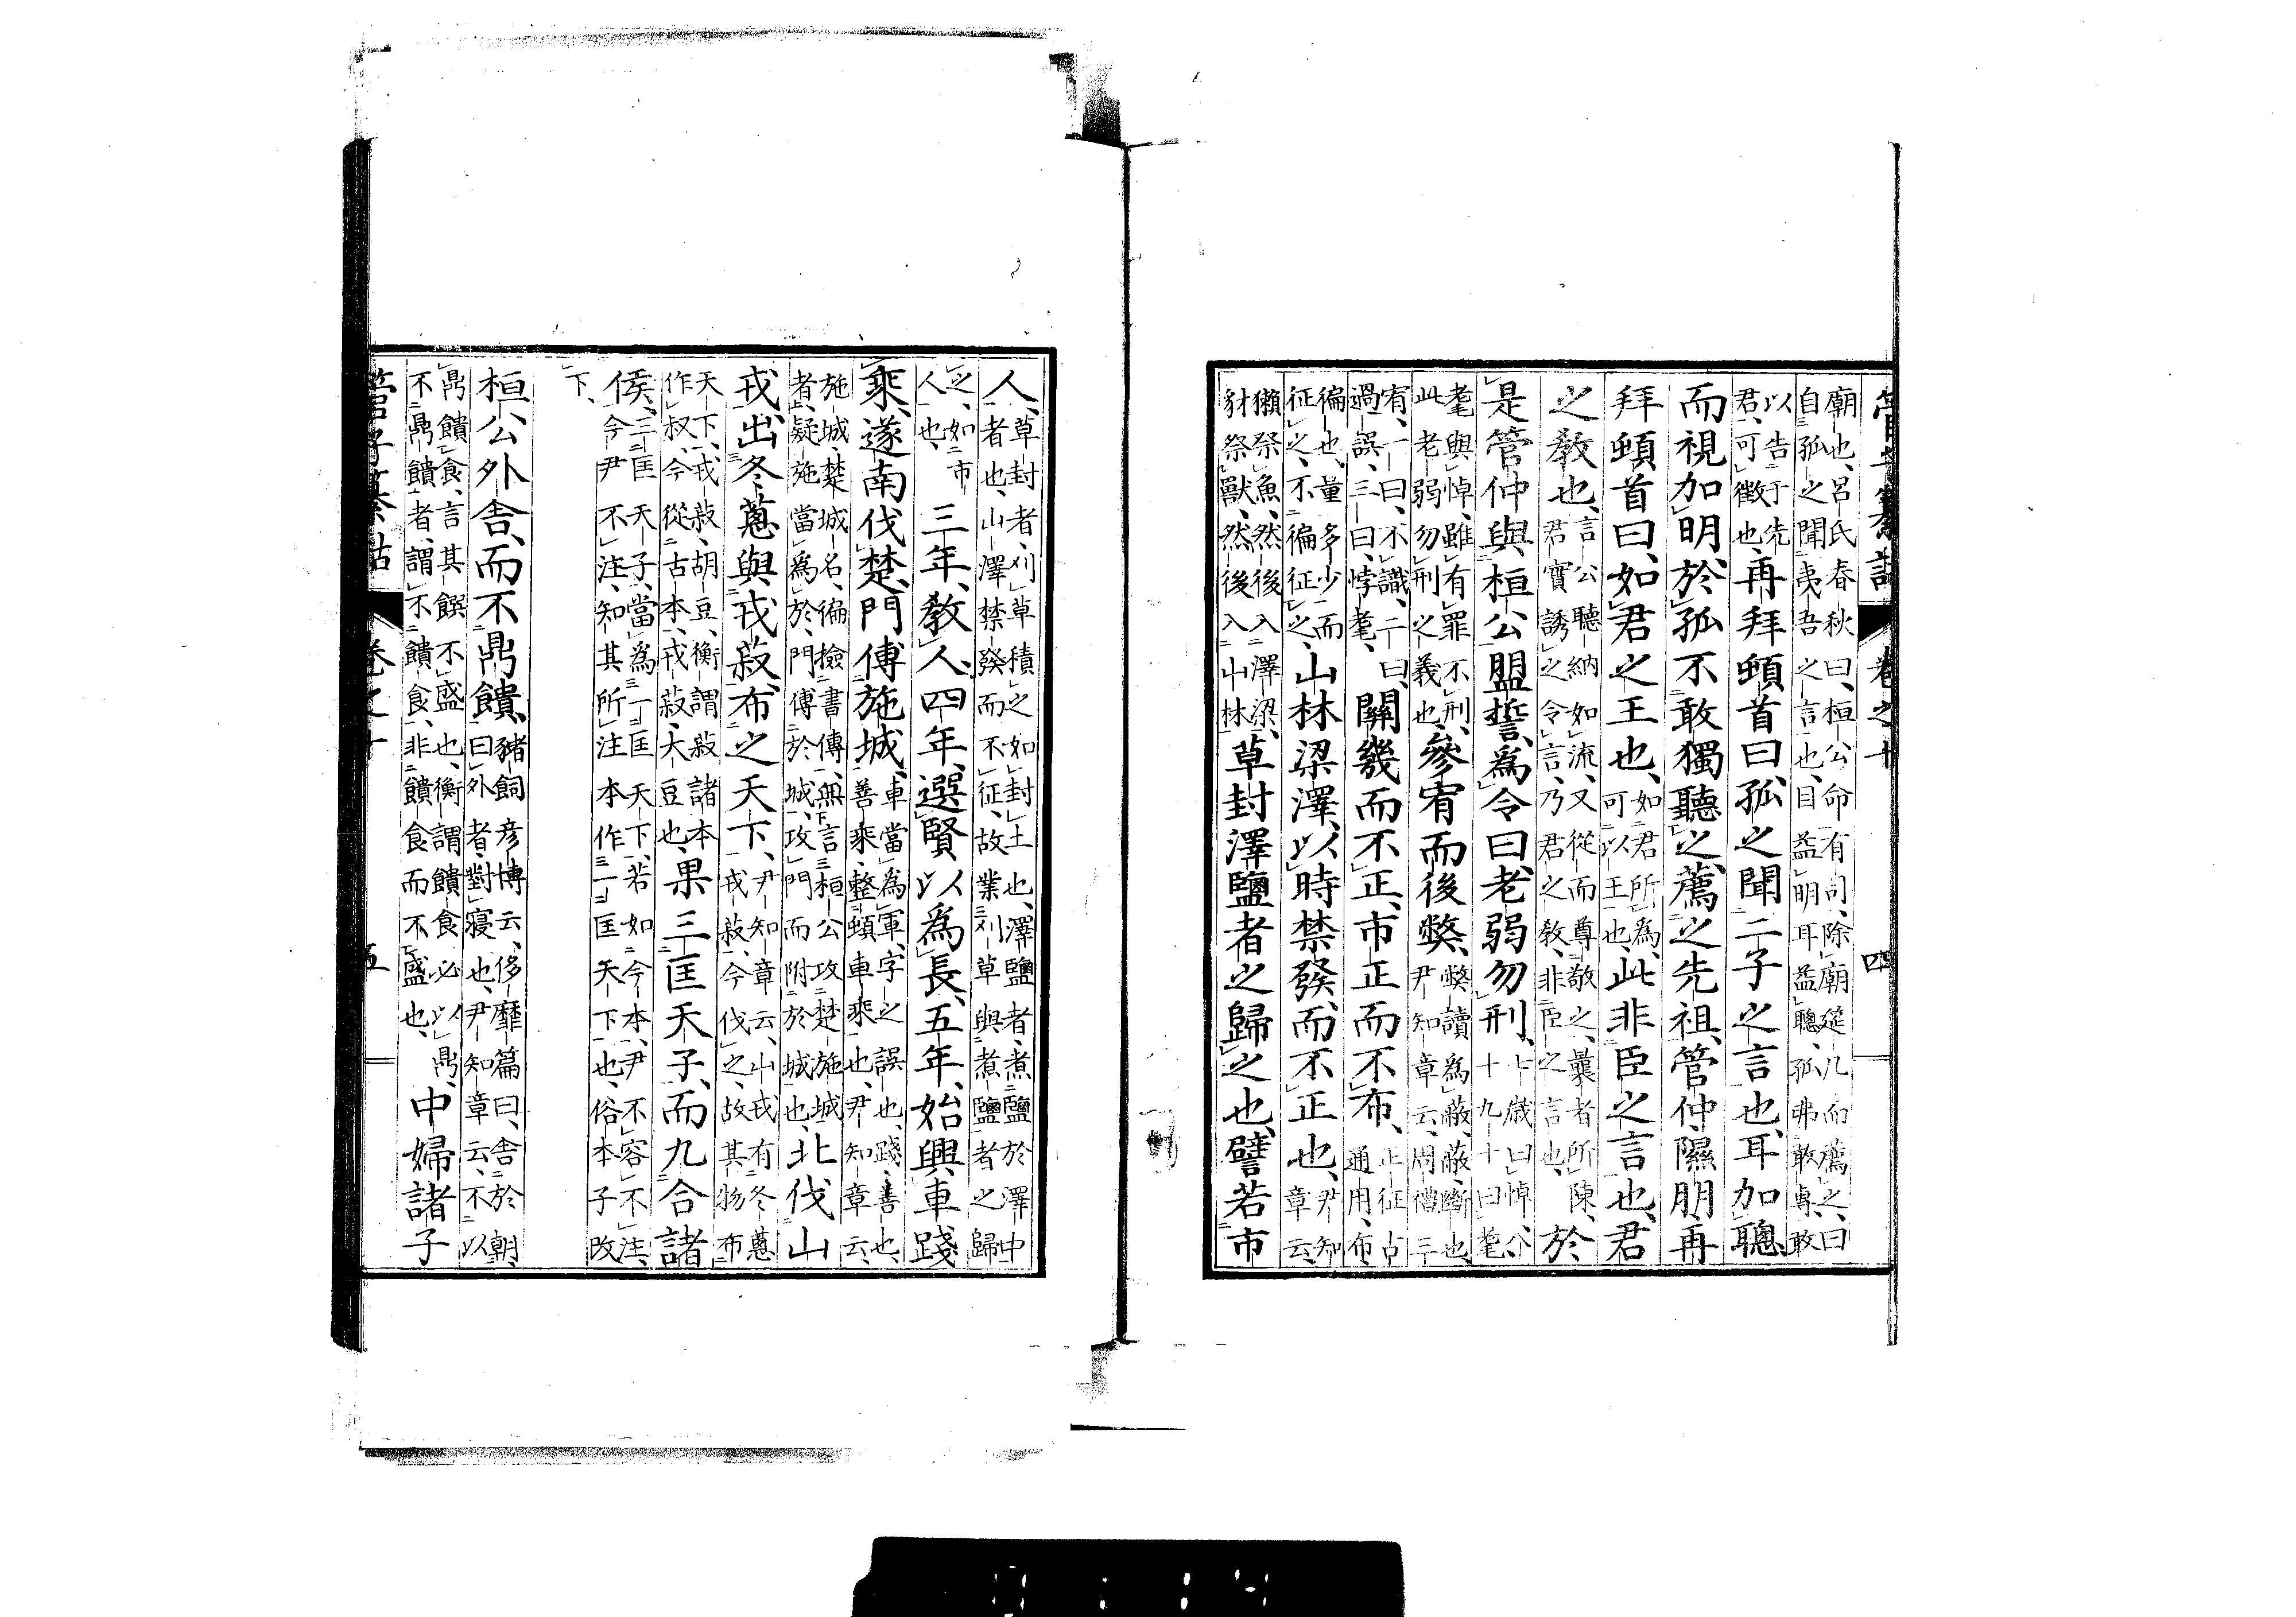 管子纂詁 卷之十 四
廟也、呂氏春秋曰、桓公命有司、除廟筵几而薦之、曰
自孤之聞夷吾之言也、目益明耳益聰、孤弗敢專、敢
以告于先
君、可徵也、再拜頓首曰、孤之聞二子之言也、耳加聰、
而視加明、於孤不敢獨聽之、薦之先祖、管仲隰朋、再
拜頓首曰、如君之王也、如君所為、
可以王也、此非臣之言也、君
之教也、言公聽納如流、又從而尊敬之、曩者所陳、
君實誘之令言、乃君之教、非臣之言也、於
是管仲與桓公盟誓、為令曰、老弱勿刑、七歲曰悼、八
十九十曰耄、
耄與悼、雖有罪不刑、
此老弱勿刑之義也、參宥而後弊、弊讀為蔽、蔽、斷也、
尹知章云、周禮三
宥、一曰、不識、二曰、
過誤、三曰、悖耄、關幾而不正、市正而不布、正征古
通用、布、
徧也、量多少而
征之、不徧征之、山林梁澤、以時禁發、而不正也、尹知
章云、
獺祭魚、然後入澤梁、
豺祭獸、然後入山林、草封澤鹽者之歸之也、譬若市
人、草封者、刈草積之如封土也、澤鹽者、煮鹽於澤中
者也、山澤禁發而不征、故業刈草與煮鹽者之歸
之、如市
人也、三年、教人、四年、選賢以為長、五年、始興車踐
乘、遂南伐楚、門傅施城、車當為軍、字之誤也、踐、善也、
善乘、整頓車乘也、尹知章云、
施城、楚城名、徧撿書傳、無言桓公攻楚施城
者、疑施當為於、門傅於城、攻門而附於城也、北伐山
戎、出冬蔥與戎菽、布之天下、尹知章云、山戎有冬蔥
戎菽、今伐之、故其物布
天下、戎菽、胡豆、衡謂菽諸本
作叔、今從古本、戎菽、大豆也、果三匡天子、而九合諸
侯、三匡天子、當為一匡天下、若如今本、尹不容不注、
今尹不注、知其所注本作一匡天下也、俗本子改
下、
桓公外舍、而不鼎饋、豬飼彥博云、侈靡篇曰、舍於朝、
曰外者、對寢也、尹知章云、不以
鼎饋食、言其饌不盛也、衡謂饋食必以鼎、
不鼎饋者、謂不饋食、非饋食而不盛也、中婦諸子
管子纂詁 卷之十 五